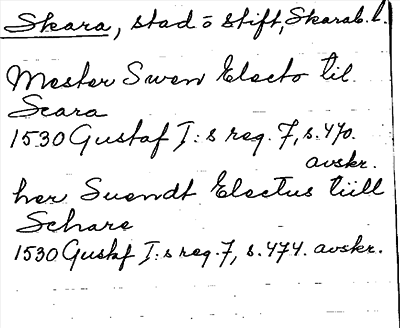 Skara, stad o stift, Skarab. l.
Mester Swen Electo til
Scara
1530 Gustaf I:s reg. 7, s. 470.
avskr.
her Suendt Electus tiill
Schare
1530 Gustaf I:s reg. 7, s. 474. avskr.